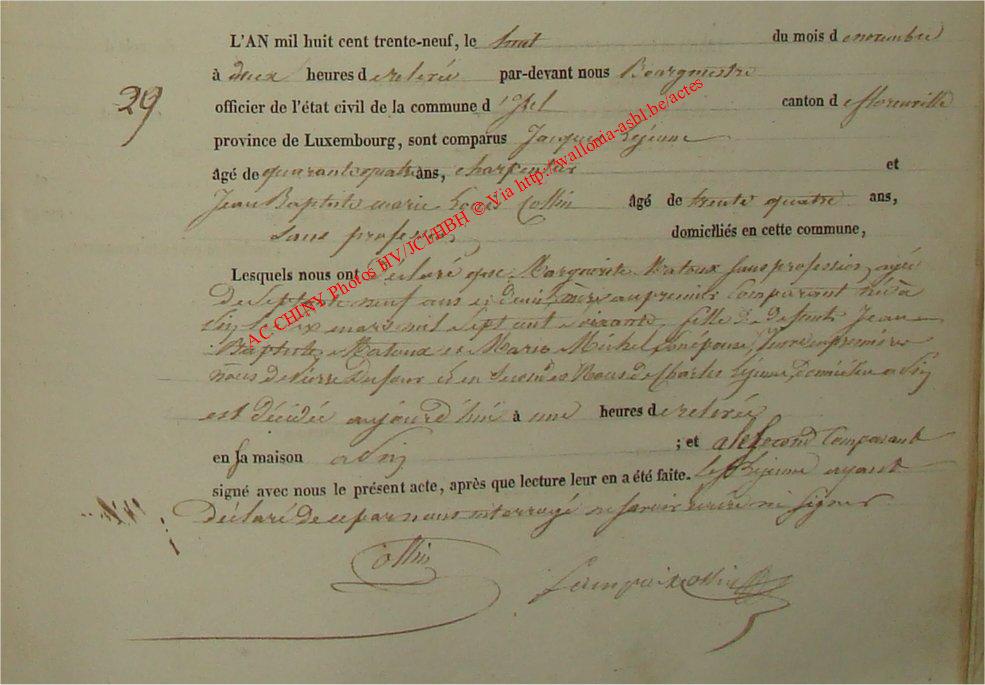 L'AN mil huit cent trente-neuf, le huit du mois de novembre
à deux heures de relevée par-devant nous Bourgmestre
29
officier de l'état civil de la commune d'Izel canton de florenville
province de Luxembourg, sont comparus Jacques Lejeune
âgé de quarante quatre ans, charpentier et
Jean Baptiste marie Collin âgé de trente quatre ans,
sans profession, domiciliés en cette commune,
Lesquels nous ont déclaré que Marguerite Matoux sans profession, agée
de Septante neuf ans et demi, mère au premier Comparant née à
mars mil Sept cent Soixante, fille de defunts Jean
Baptiste Matoux et Marie Michel son epouse, en première
nôces de Pierre Dufour et en Secondes Nôces de Charles Lejeune, domiciliée a
est décédée aujourd'hui à une heures de relevée
en sa maison a ; et a le Second Comparant
signé avec nous le présent acte, après que lecture leur en a été faite. Le Sr Lejeune ayant
Déclaré de ce par nous interrogé ne savoir écrire ni Signer
Collin
AC CHINY Photos HV/JCl/HBH © Via http://wallonia-asbl.be/actes